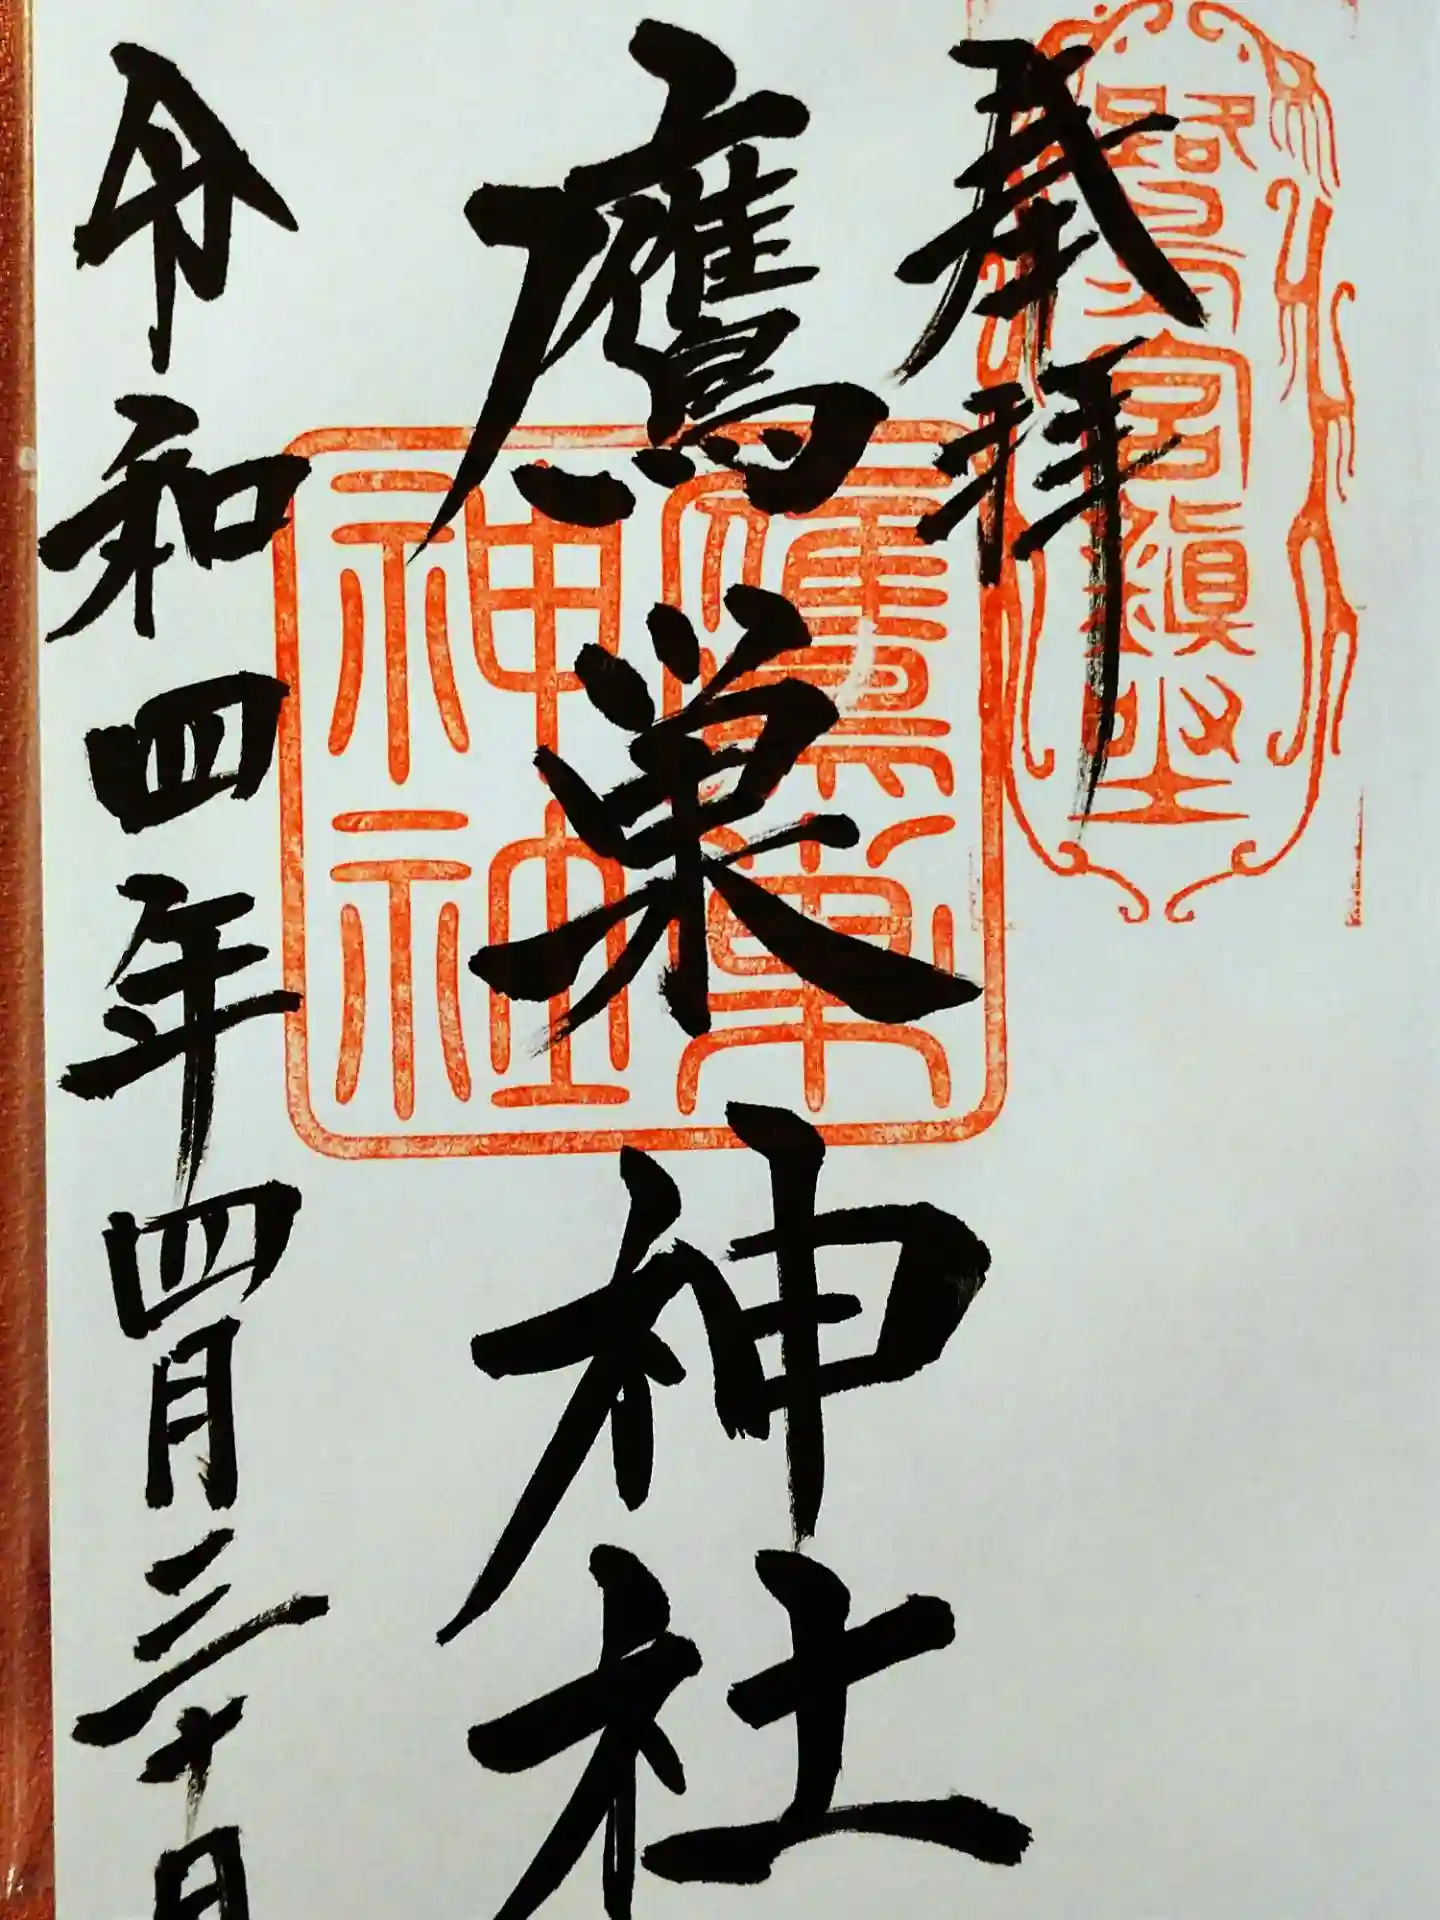 奉拝
宮鎮座
鷹巣神社
鷹巣神社
令和四年四月三十日